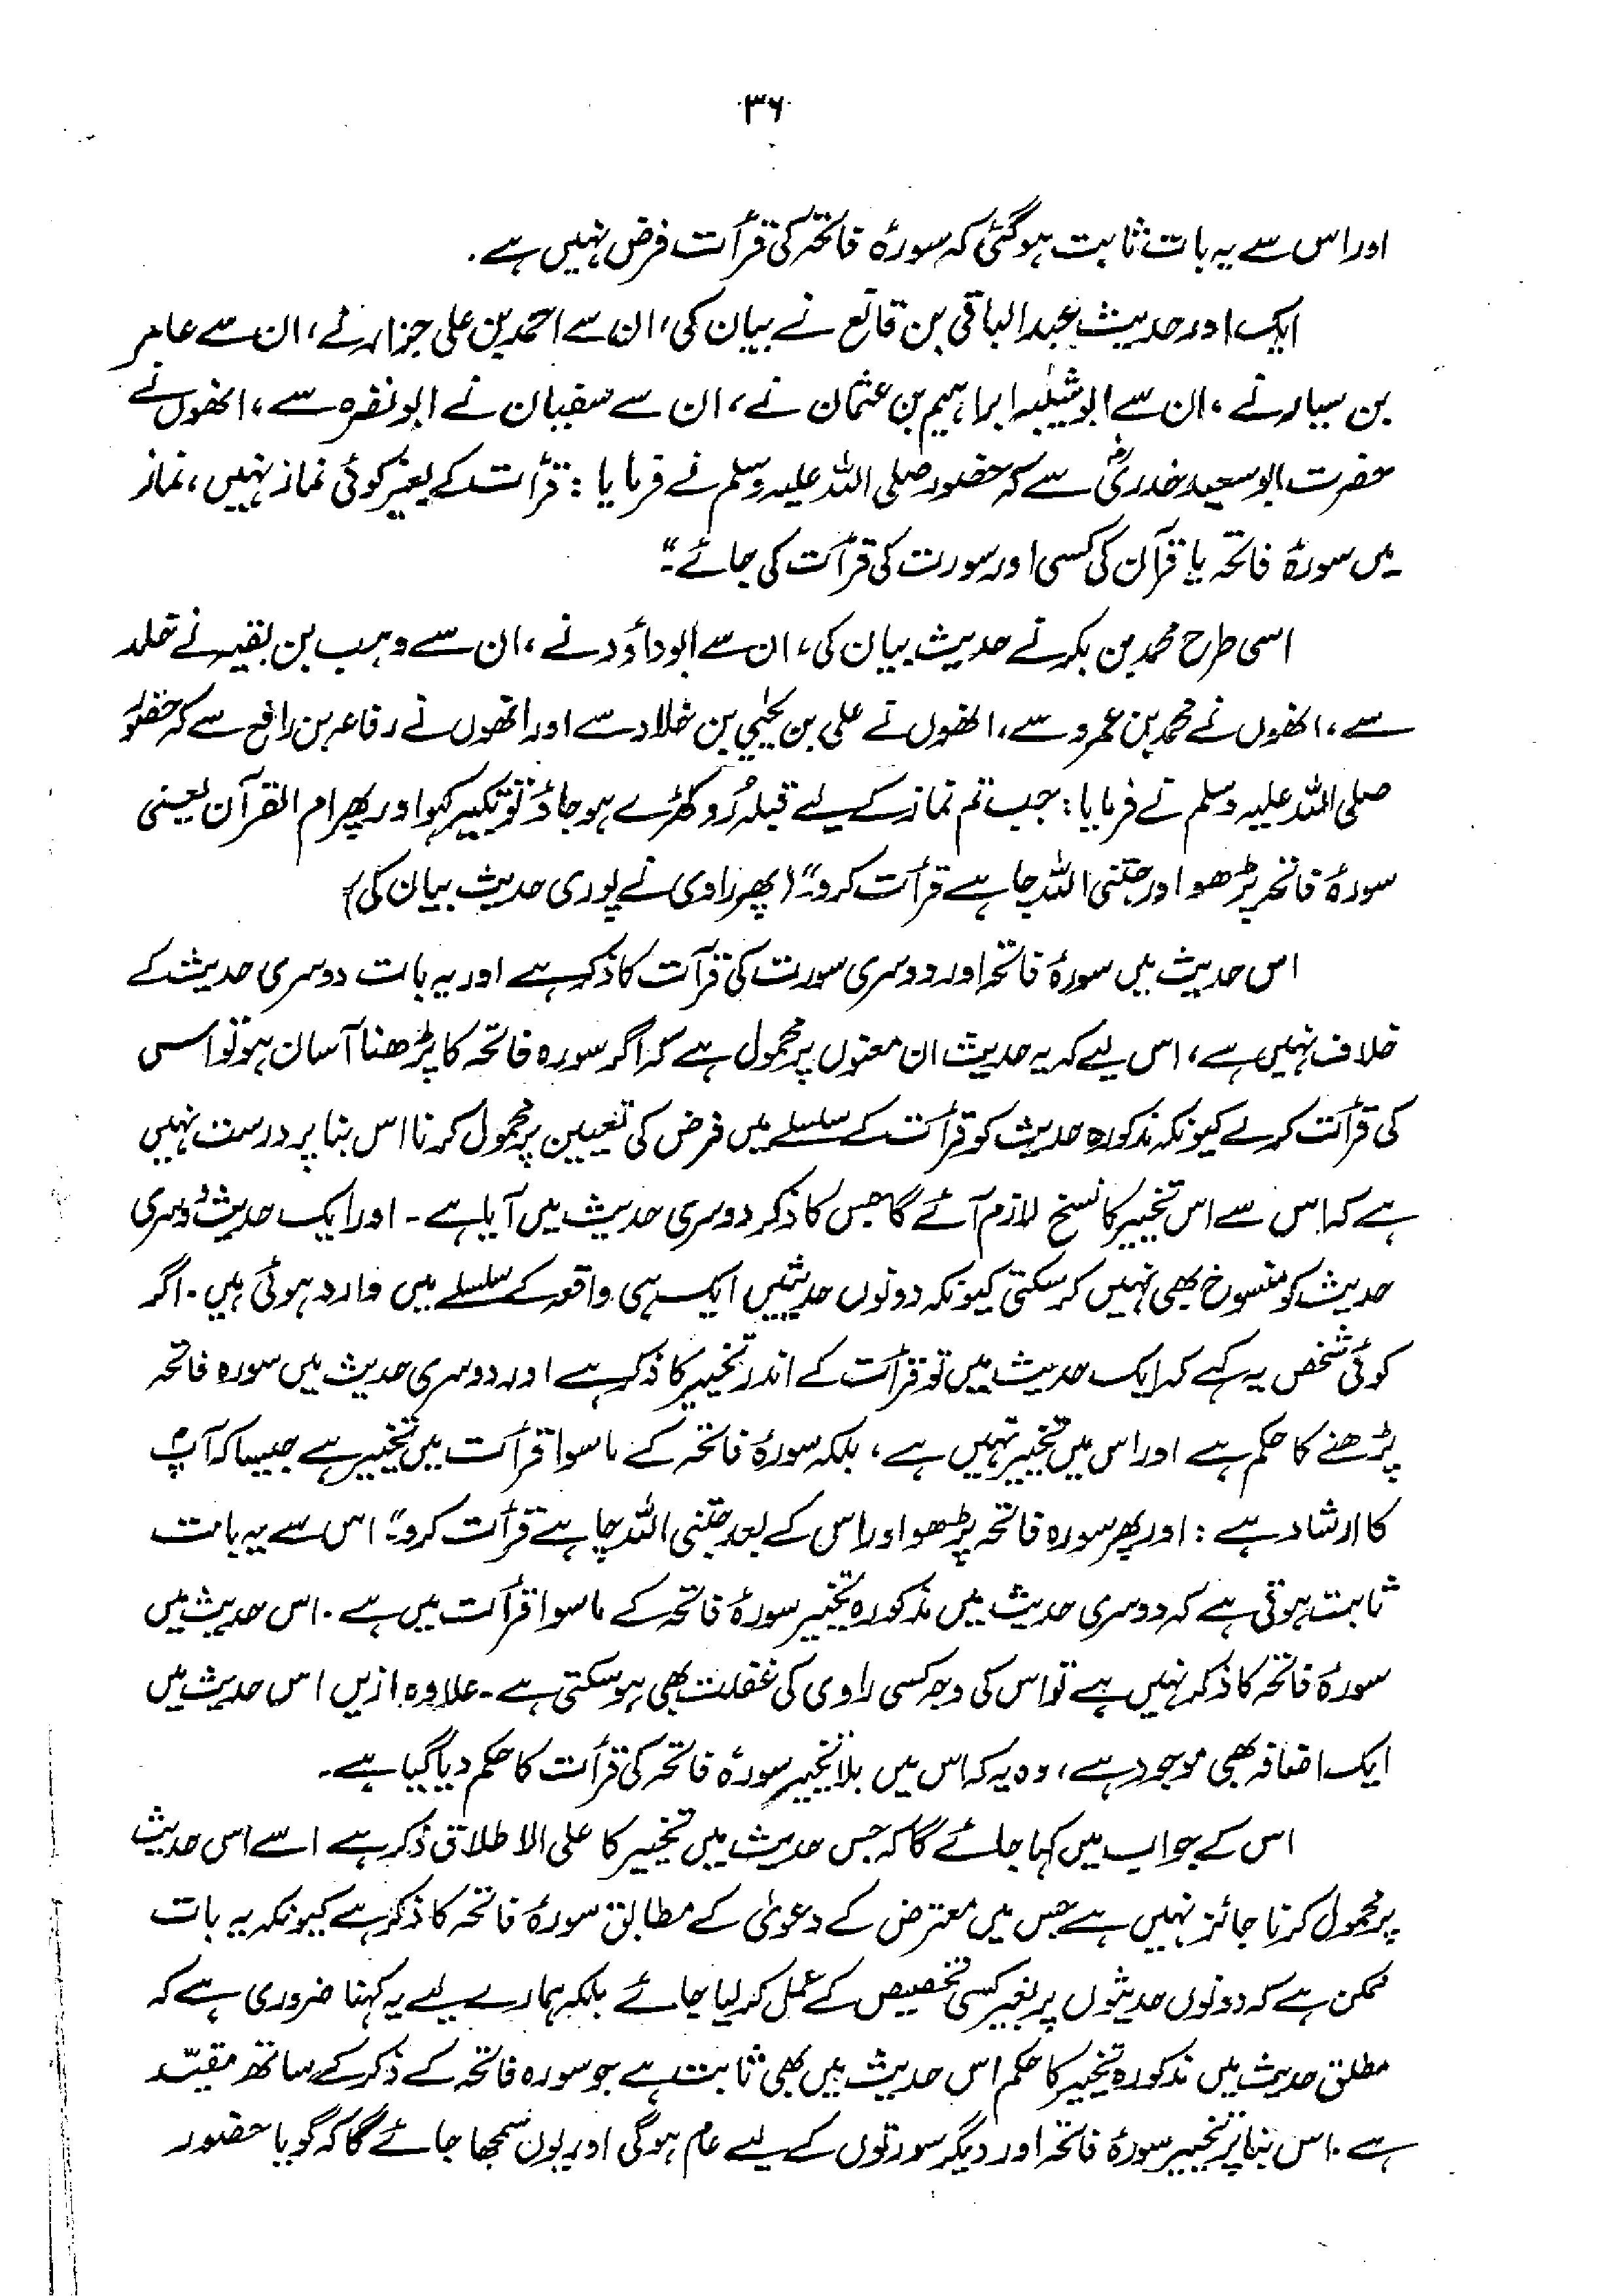 ۳۶
اور اس سے یہ بات ثابت ہوگئی کہ سورۂ فاتحہ کی قرأت فرض نہیں ہے۔
ایک اور حدیث عبدالباقی بن قانع نے بیان کی، ان سے احمد بن علی جزار نے، ان سے عامر
بن سیار نے، ان سے ابوشیبہ ابراہیم بن عثمان نے، ان سے سفیان نے ابونضرہ سے، انھوں نے
حضرت ابوسعید خدریؓ سے کہ حضور صلی اللہ علیہ وسلم نے فرمایا: قرأت کے بغیر کوئی نماز نہیں، نماز
میں سورۂ فاتحہ یا قرآن کی کسی اور سورت کی قرأت کی جائے۔"
اسی طرح محمد بن بکر نے حدیث بیان کی، ان سے ابوداؤد نے، ان سے وہب بن بقیہ نے خلد
سے، انھوں نے محمد بن عمرو سے، انھوں نے علی بن یحییٰ بن خلاد سے اور انھوں نے رفاعہ بن رافع سے کہ حضور
صلی اللہ علیہ وسلم نے فرمایا: جب تم نماز کے لیے قبلہ رُو کھڑے ہو جاؤ تو تکبیر کہو اور پھر ام القرآن یعنی
سورۂ فاتحہ پڑھو اور جتنی اللہ چاہے قرأت کرو۔" (پھر راوی نے پوری حدیث بیان کی)
اس حدیث میں سورۂ فاتحہ اور دوسری سورت کی قرأت کا ذکر ہے اور یہ بات دوسری حدیث کے
خلاف نہیں ہے، اس لیے کہ یہ حدیث ان معنوں پر محمول ہے کہ اگر سورہ فاتحہ کا پڑھنا آسان ہو تو اس
کی قرأت کرلے کیونکہ مذکورہ حدیث کو قرأت کے سلسلے میں فرض کی تعیین پر محمول کرنا اس بنا پر درست نہیں
ہے کہ اس سے اس تخییر کا نسخ لازم آئے گا جس کا ذکر دوسری حدیث میں آیا ہے۔ اور ایک حدیث دوسری
حدیث کو منسوخ بھی نہیں کرسکتی کیونکہ دونوں حدیثیں ایک ہی واقعہ کے سلسلے میں وارد ہوئی ہیں۔ اگر
کوئی شخص یہ کہے کہ ایک حدیث میں تو قرأت کے اندر تخییر کا ذکر ہے اور دوسری حدیث میں سورہ فاتحہ
پڑھنے کا حکم ہے اور اس میں تخییر نہیں ہے، بلکہ سورۂ فاتحہ کے ماسوا قرأت میں تخییر ہے جیسا کہ آپؐ
کا ارشاد ہے: اور پھر سورہ فاتحہ پڑھو اور اس کے بعد جتنی اللہ چاہے قرأت کرو۔" اس سے یہ بات
ثابت ہوتی ہے کہ دوسری حدیث میں مذکورہ تخییر سورۂ فاتحہ کے ماسوا قرأت میں ہے۔ اس حدیث میں
سورۂ فاتحہ کا ذکر نہیں ہے تو اس کی وجہ کسی راوی کی غفلت بھی ہوسکتی ہے۔ علاوہ ازیں اس حدیث میں
ایک اضافہ بھی موجود ہے، وہ یہ کہ اس میں بلا تخییر سورۂ فاتحہ کی قرأت کا حکم دیا گیا ہے۔
اس کے جواب میں کہا جائے گا کہ جس حدیث میں تخییر کا علی الاطلاق ذکر ہے اسے اس حدیث
پر محمول کرنا جائز نہیں ہے جس میں معترض کے دعویٰ کے مطابق سورۂ فاتحہ کا ذکر ہے کیونکہ یہ بات
ممکن ہے کہ دونوں حدیثوں پر بغیر کسی تخصیص کے عمل کرلیا جائے بلکہ ہمارے لیے یہ کہنا ضروری ہے کہ
مطلق حدیث میں مذکورہ تخییر کا حکم اس حدیث میں بھی ثابت ہے جو سورہ فاتحہ کے ذکر کے ساتھ مقیّد
ہے۔ اس بنا پر تخییر سورۂ فاتحہ اور دیگر سورتوں کے لیے عام ہوگی اور یوں سمجھا جائے گا کہ گویا حضور